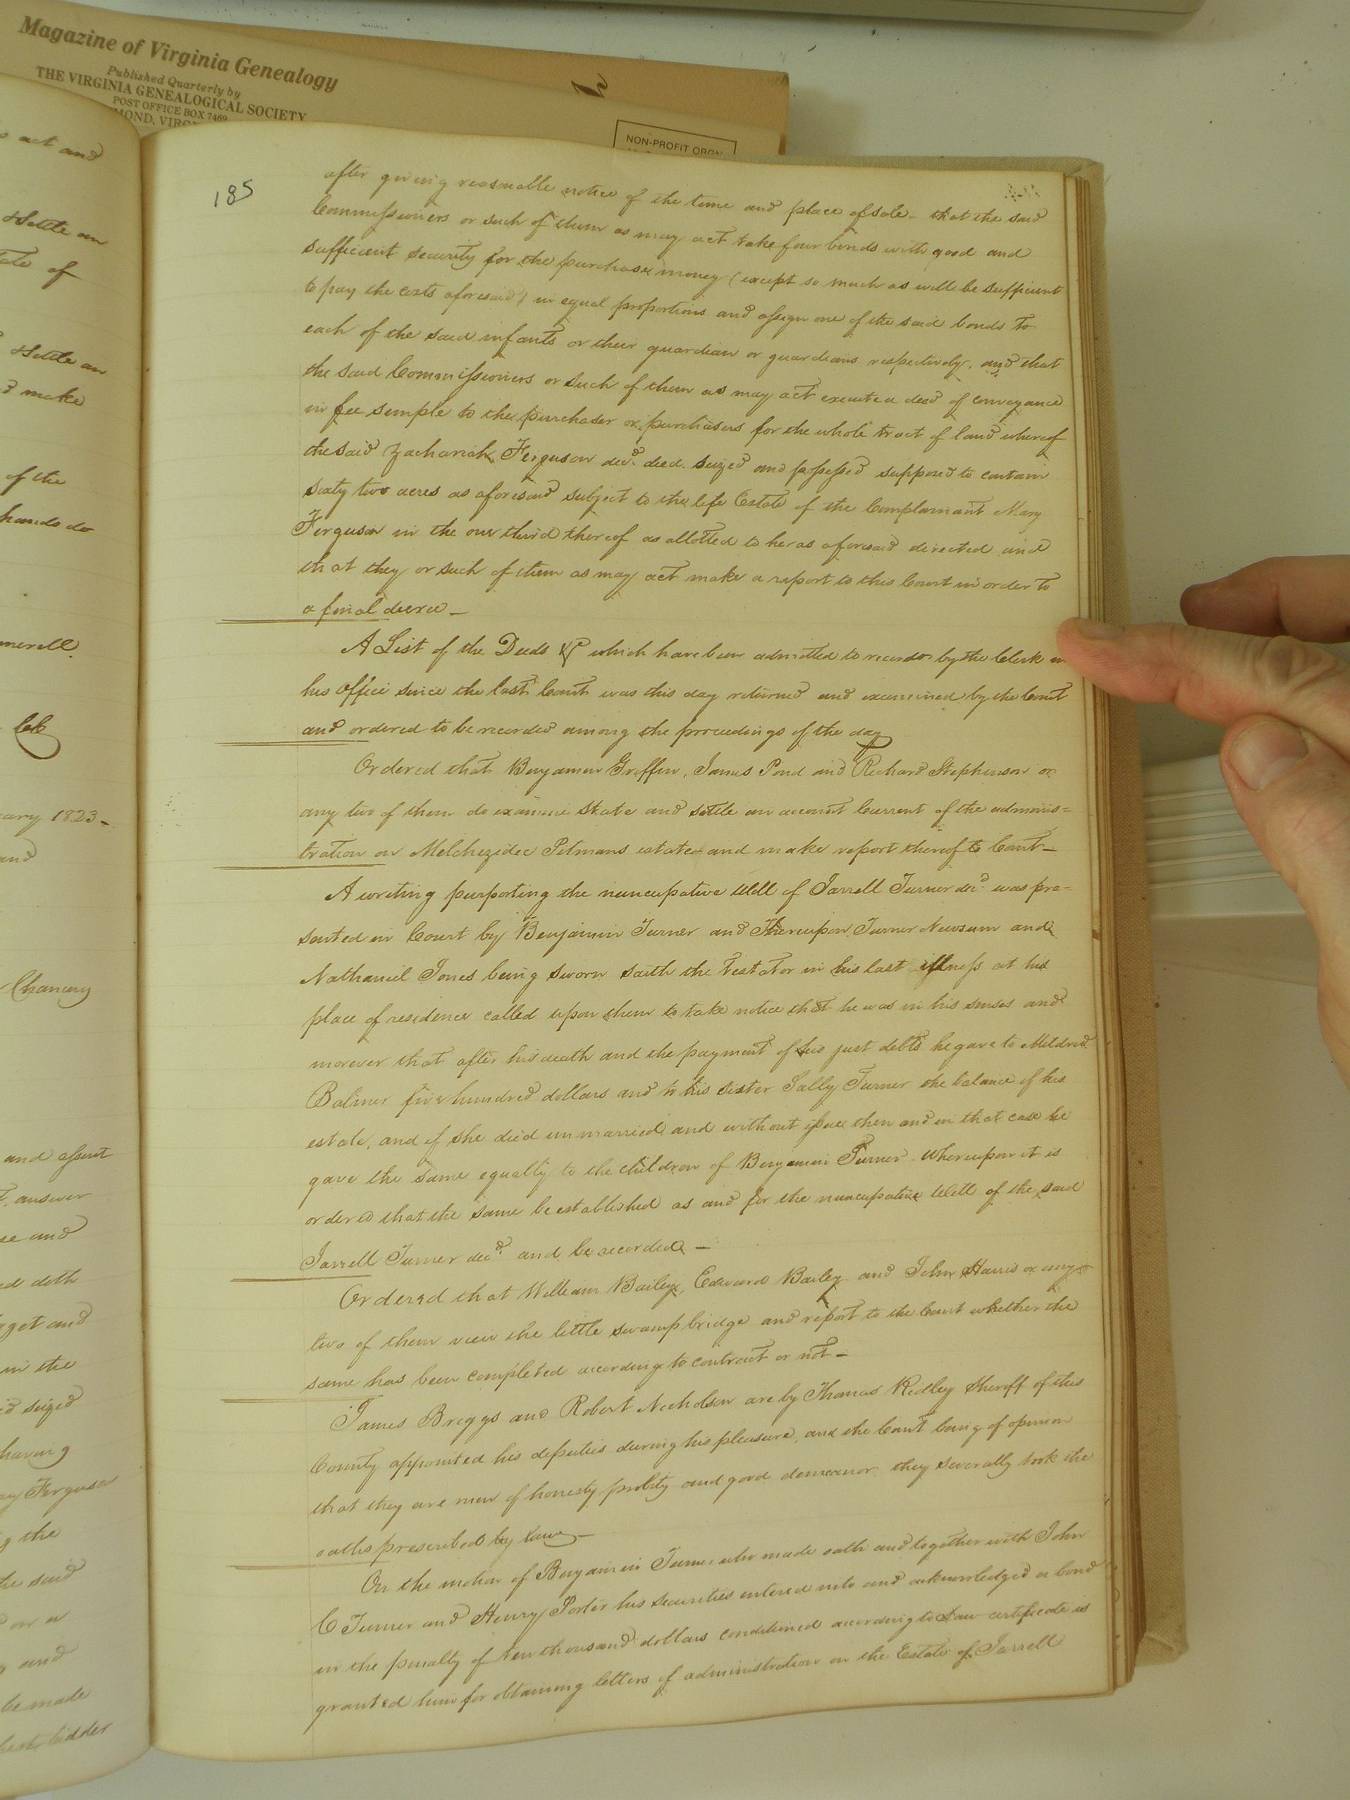 Magazine of Virginia Genealogy
Published Quarterly by
THE VIRGINIA GENEALOGICAL SOCIETY
POST OFFICE BOX 7469
MOND, VIRG
NON-PROFIT ORGN
act and
Settle an
of
Settle an
make
of the
hands do
1823-
and
Chancery
and assent
answer
and
doth
get and
in the
seized
having
Ferguson
the
the said
or a
and
be made
bidder
185
after giving reasonable notice of the time and place of sale - that the said
Commissioners or such of them as may act take four bonds with good and
sufficient security for the purchase money (except so much as will be sufficient
to pay the costs aforesaid) in equal proportions and assign one of the said bonds to
each of the said infants or their guardian or guardians respectively. and that
the said Commissioners or such of them as may act execute a deed of conveyance
in fee simple to the purchaser or purchasers for the whole tract of land whereof
the said Zachariah Ferguson decd. died seized and possessed supposed to contain
Sixty two acres as aforesaid subject to the life Estate of the Complainant Mary
Ferguson in the one third thereof as allotted to her as aforesaid directed and
that they or such of them as may act make a report to this Court in order to
a final decree -
A List of the Deeds &c which have been admitted to record by the Clerk in
his office since the last Court was this day returned and examined by the Court
and ordered to be recorded among the proceedings of the day
Ordered that Benjamin Griffin, James Pond and Richard Stephenson or
any two of them do examine State and settle an account Current of the adminis=
tration on Melchezidec Pitmans estate and make report thereof to Court -
A writing purporting the nuncupative Will of Jarrell Turner decd. was pre=
sented in Court by Benjamin Turner and Thereupon Turner Newsum and
Nathaniel Jones being sworn saith the Testator in his last illness at his
place of residence called upon them to take notice that he was in his senses and
morever that after his death and the payment of his just debts he gave to Mildred
Balmer five hundred dollars and to his sister Sally Turner the balance of his
estate, and if she died unmarried and without issue then and in that case he
gave the same equally to the children of Benjamin Turner. Whereupon it is
ordered that the same be established as and for the nuncupative Will of the said
Jarrell Turner decd. and be recorded -
Ordered that William Bailey, Edward Bailey and John Harris or any
two of them view the little swamp bridge and report to the Court whether the
same has been completed according to contract or not -
James Briggs and Robert Nicholson are by Thomas Ridley Sheriff of this
County appointed his deputies during his pleasure, and the Court being of opinion
that they are men of honesty probity and good demeanor they severally took the
oaths prescribed by law -
On the motion of Benjamin Turner who made oath and together with John
C Turner and Henry Porter his securities entered into and acknowledged a bond
in the penalty of ten thousand dollars conditioned according to Law certificate is
granted him for obtaining letters of administration on the Estate of Jarrell